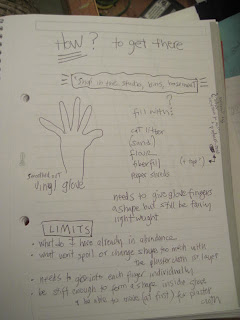 HOW? to get there
fill with:
cat litter
(sand)
flour
fiberfil
paper shreds
vinyl glove
needs to give glove fingers
a shape but still be fairly
lightweight
LIMITS
• what do I have already in abundance
• what won't spoil or change shape too much with
the plaster cloth or layer
• needs to get into each finger individually
be stiff enough to form a shape inside glove
& be able to make (at first) for plaster
cloth